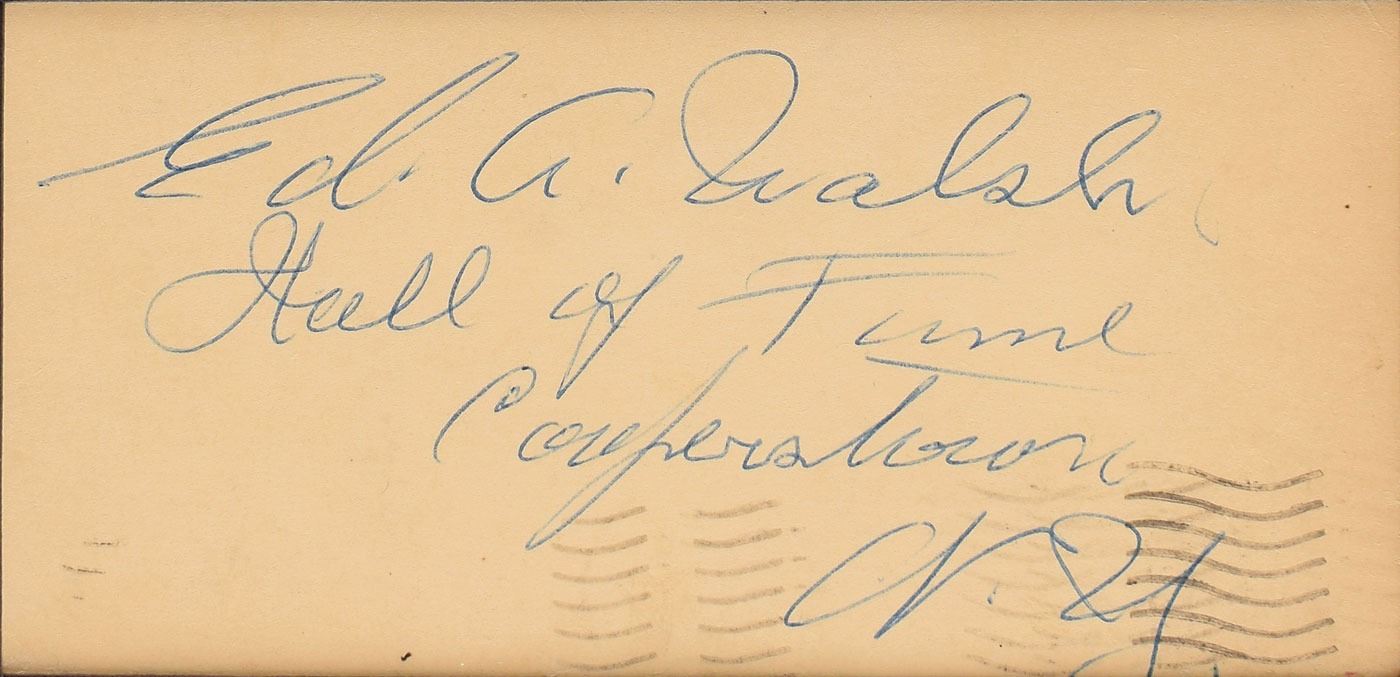 Ed. A. Walsh
Hall of Fame
Cooperstown
N. Y.